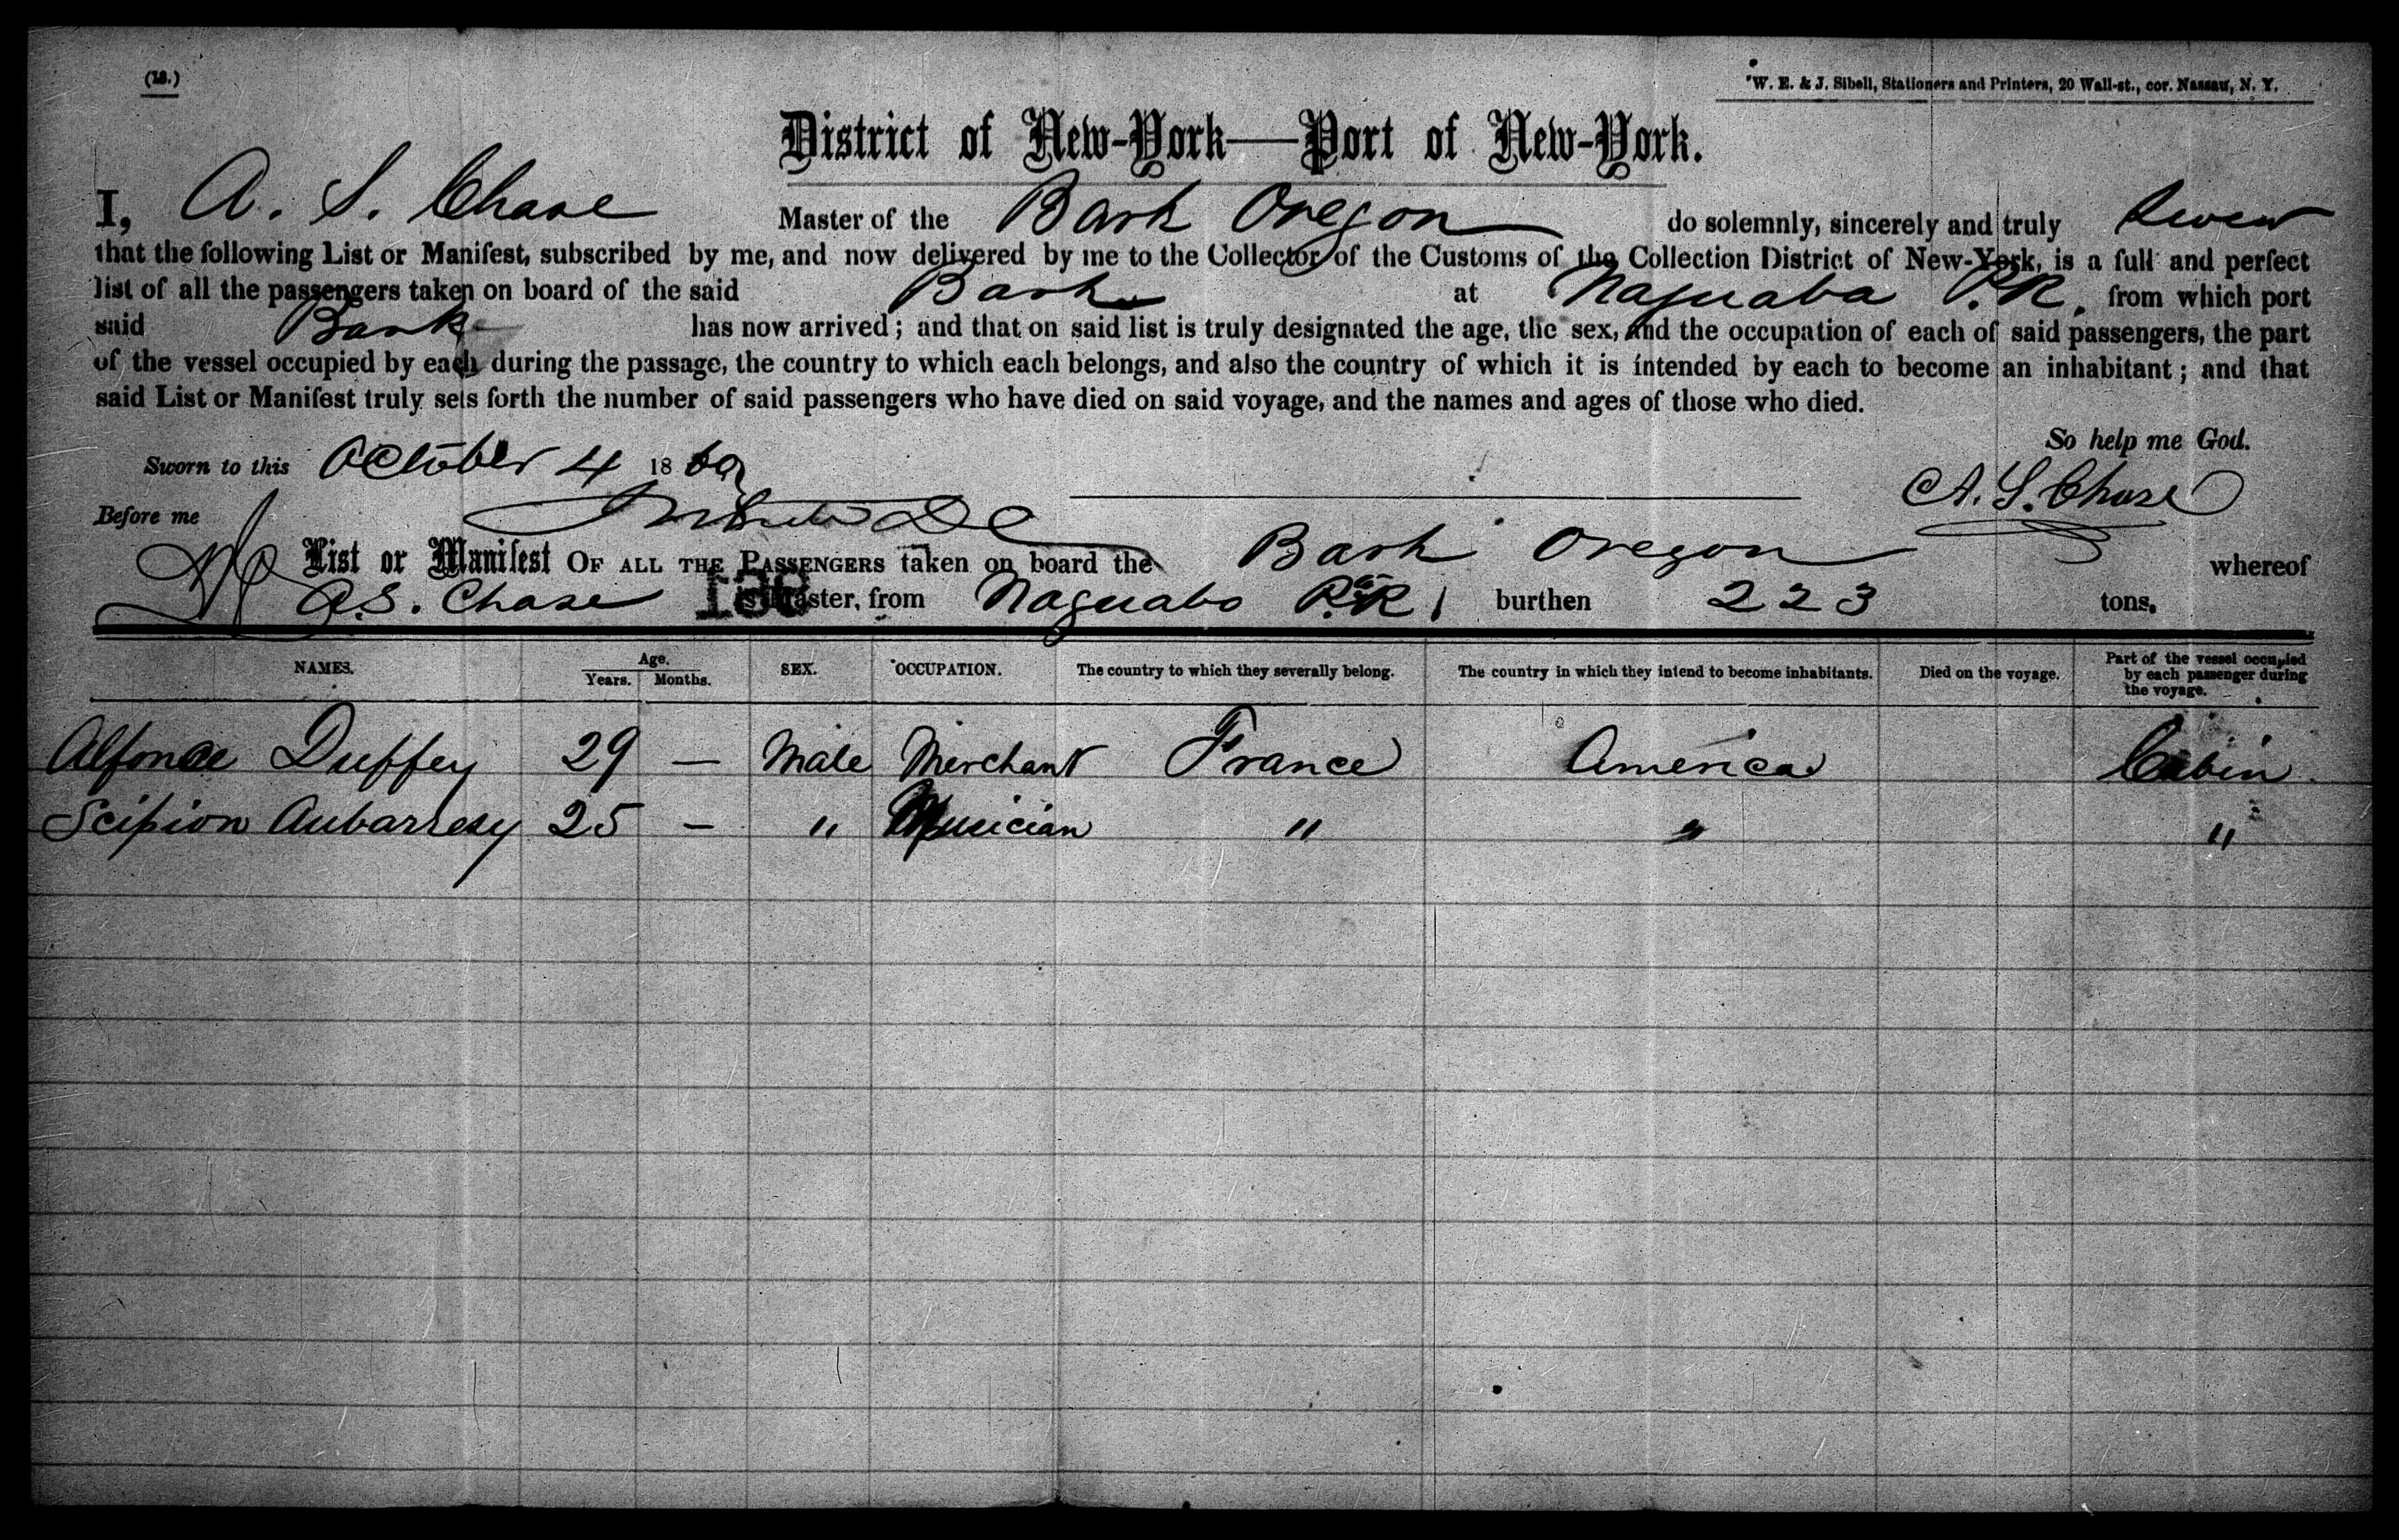 (18.)
W. E. & J. Sibell, Stationers and Printers, 20 Wall-st., cor. Nassau, N. Y.
District of New-York—Port of New-York.
I, A. S. Chase Master of the Bark Oregon do solemnly, sincerely and truly swear
that the following List or Manifest, subscribed by me, and now delivered by me to the Collector of the Customs of the Collection District of New-York, is a full and perfect
list of all the passengers taken on board of the said Bark at Naguaba P.R. from which port
said Bark has now arrived; and that on said list is truly designated the age, the sex, and the occupation of each of said passengers, the part
of the vessel occupied by each during the passage, the country to which each belongs, and also the country of which it is intended by each to become an inhabitant; and that
said List or Manifest truly sets forth the number of said passengers who have died on said voyage, and the names and ages of those who died.
So help me God.
Sworn to this October 4 1869
A. S. Chase
Before me
List or Manifest OF ALL THE PASSENGERS taken on board the Bark Oregon whereof
A.S. Chase is Master, from Naguabo P.R. burthen 223 tons.
NAMES. Age. Years. Months. SEX. OCCUPATION. The country to which they severally belong. The country in which they intend to become inhabitants. Died on the voyage. Part of the vessel occupied by each passenger during the voyage.
Alfonce Duffey 29 — Male Merchant France America Cabin
Scipion Aubarresy 25 — " Musician " " "